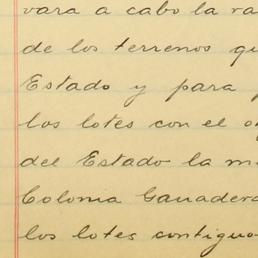 vara a cabo la ra
de los terrenos qu
Estado y para
los lotes con el o
del Estado la m
Colonia Ganadera
los lotes contiguo